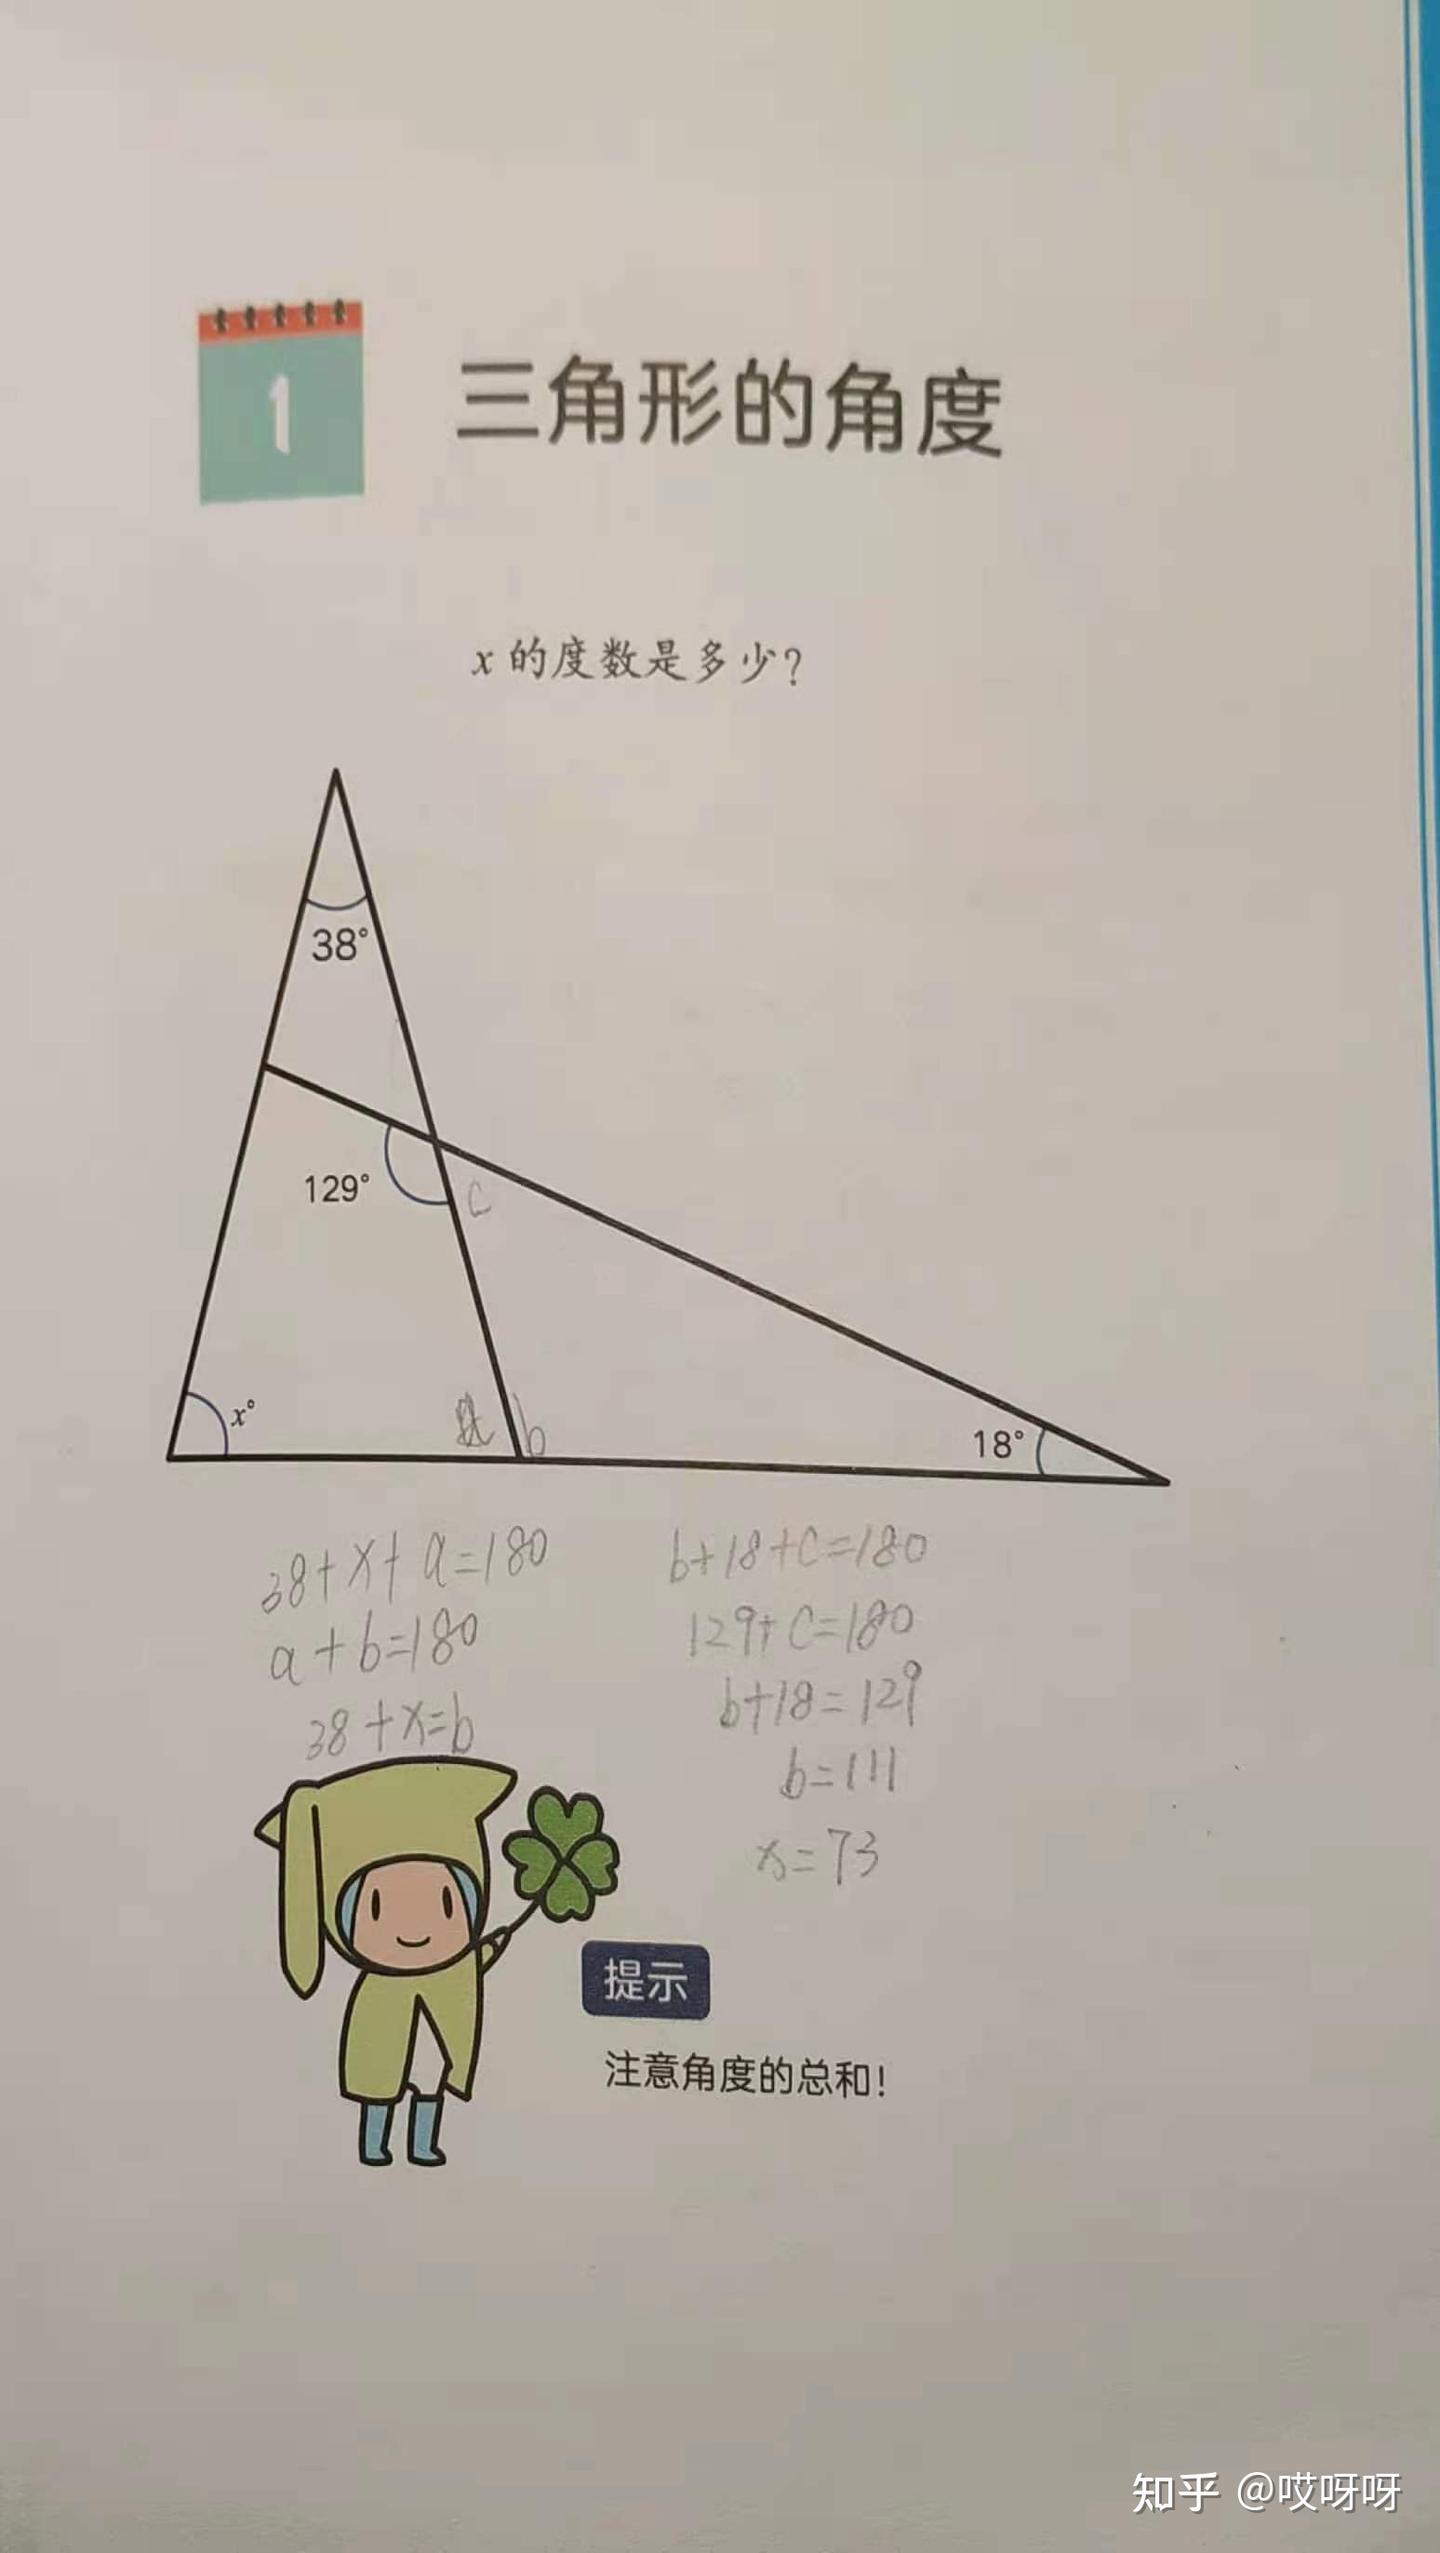 1
三角形的角度
x 的度数是多少?
38°
129°
c
x°
a
b
18°
38+x+a=180
a+b=180
38+x=b
b+18+c=180
129+c=180
b+18=129
b=111
x=73
提示
注意角度的总和!
知乎 @哎呀呀